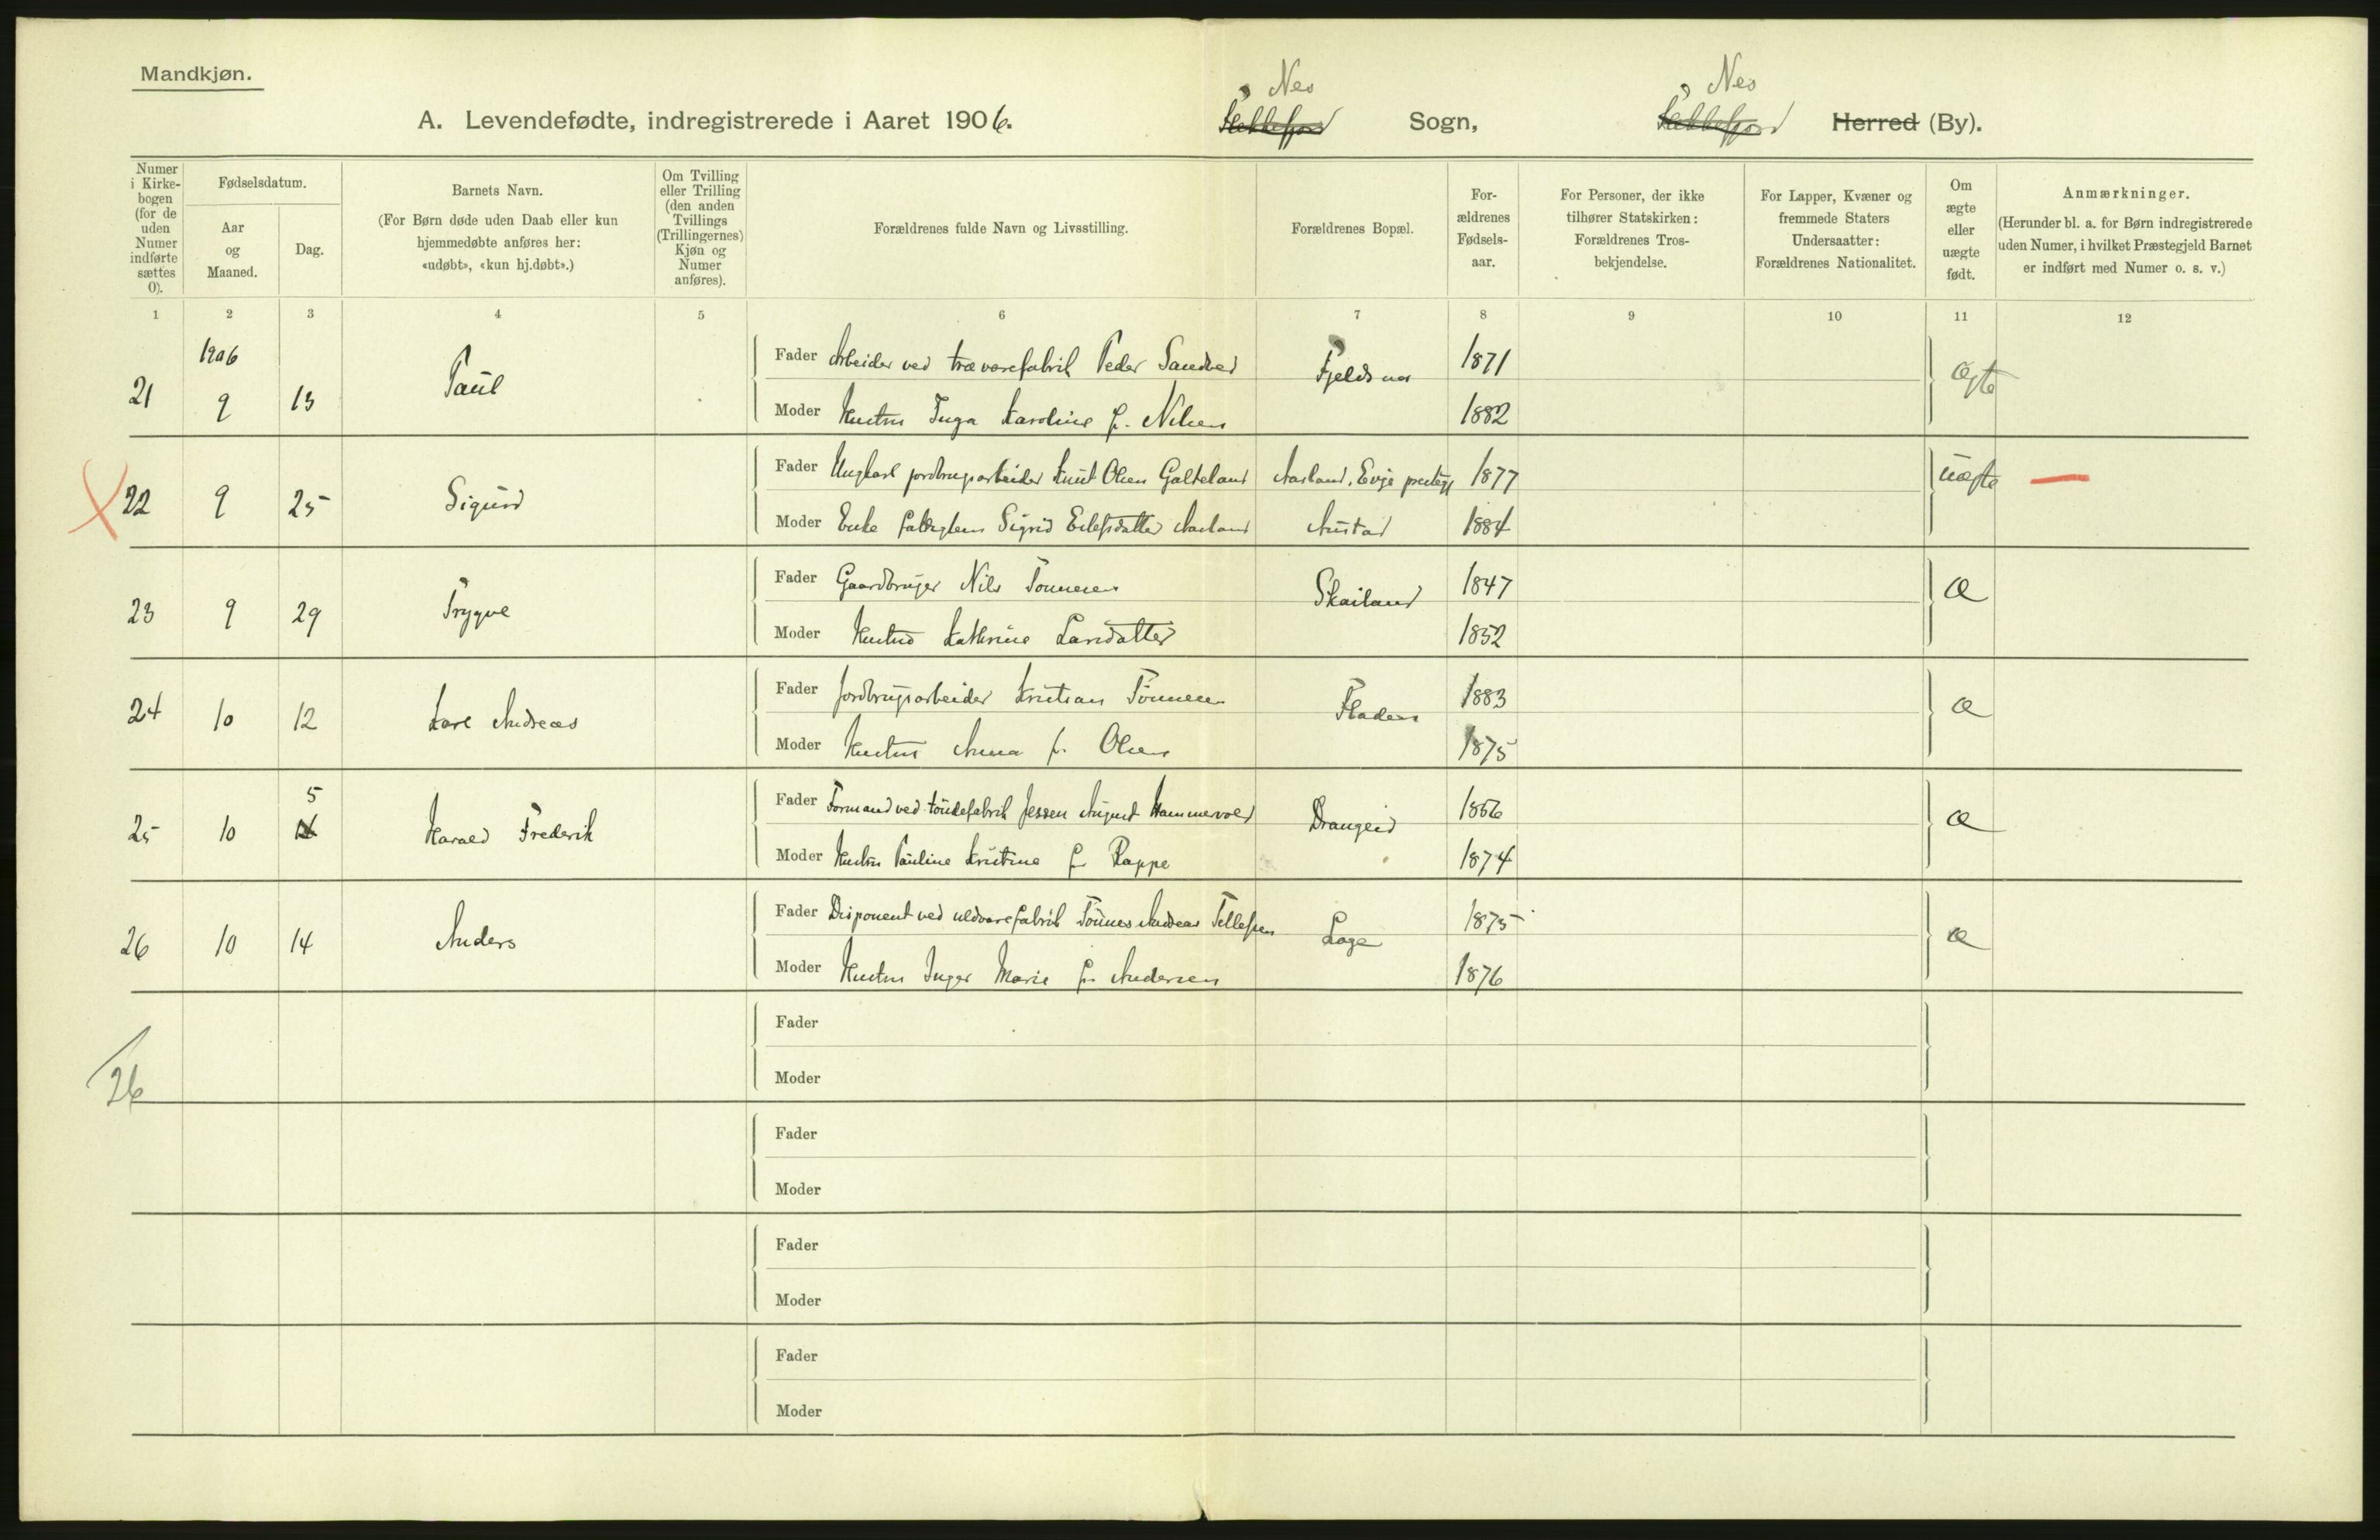 Mandkjøn.
A. Levendefødte, indregistrerede i Aaret 1906.
Nes
Flekkefjord Sogn,
Nes
Flekkefjord Herred (By).
Numer i Kirkebogen (for de uden Numer indførte sættes 0).
Fødselsdatum.
Aar og Maaned.
Dag.
Barnets Navn.
(For Børn døde uden Daab eller kun hjemmedøbte anføres her: «udøbt», «kun hj.døbt».)
Om Tvilling eller Trilling (den anden Tvillings (Trillingernes) Kjøn og Numer anføres).
Forældrenes fulde Navn og Livsstilling.
Forældrenes Bopæl.
Forældrenes Fødselsaar.
For Personer, der ikke tilhører Statskirken: Forældrenes Trosbekjendelse.
For Lapper, Kvæner og fremmede Staters Undersaatter: Forældrenes Nationalitet.
Om ægte eller uægte født.
Anmærkninger.
(Herunder bl. a. for Børn indregistrerede uden Numer, i hvilket Præstegjeld Barnet er indført med Numer o. s. v.)
1 2 3 4 5 6 7 8 9 10 11 12
1906
21 9 13 Paul
Fader Arbeider ved trævarefabrik Peder Sandved Fjeldsaa 1871 ægte
Moder Hustru Inga Karoline f. Nilsen 1882
22 9 25 Sigurd
Fader Ungkarl jordbrugsarbeider Knut Olsen Galteland Aasland, Evje prestegj 1877 uægte —
Moder Enke Sigrid Eilefsdatter Aasland Austad 1884
23 9 29 Trygve
Fader Gaardbruger Nils Tønnesen Skailand 1847 æ
Moder Hustru Kathrine Larsdatter 1852
24 10 12 Kare Andreas
Fader Jordbrugsarbeider Kristian Tønnesen Fladen 1883 æ
Moder Hustru Anna f. Olsen 1875
25 10 5 Harald Frederik
Fader Formand ved tøndefabrik Jessen August Hammervold Drangeid 1866 æ
Moder Hustru Pauline Kristine f. Rappe 1874
26 10 14 Anders
Fader Disponent ved uldvarefabrik Tønnes Andreas Tellefsen Loge 1875 æ
Moder Hustru Inger Marie f. Andersen 1876
Fader
26
Moder
Fader
Moder
Fader
Moder
Fader
Moder